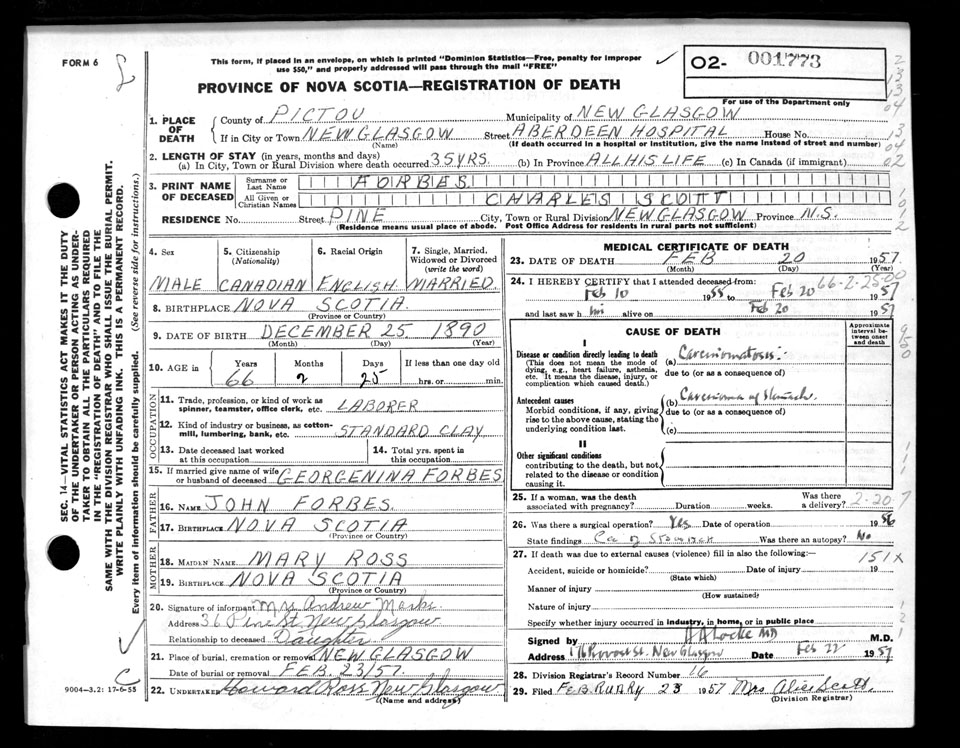 FORM 6
This form, if placed in an envelope, on which is printed "Dominion Statistics—Free, penalty for improper
use $50," and properly addressed will pass through the mail "FREE"
PROVINCE OF NOVA SCOTIA—REGISTRATION OF DEATH
O2- 001773
For use of the Department only
1. PLACE OF DEATH
County of PICTOU Municipality of NEW GLASGOW
If in City or Town NEW GLASGOW Street ABERDEEN HOSPITAL House No.
(Name) (If death occurred in a hospital or institution, give the name instead of street and number)
2. LENGTH OF STAY (in years, months and days)
(a) In City, Town or Rural Division where death occurred 35 YRS. (b) In Province ALL HIS LIFE (c) In Canada (if immigrant)
3. PRINT NAME OF DECEASED
Surname or Last Name FORBES
All Given or Christian Names CHARLES SCOTT
RESIDENCE No. Street PINE City, Town or Rural Division NEW GLASGOW Province N.S.
(Residence means usual place of abode. Post Office Address for residents in rural parts not sufficient)
4. Sex MALE
5. Citizenship (Nationality) CANADIAN
6. Racial Origin ENGLISH
7. Single, Married, Widowed or Divorced (write the word) MARRIED
8. BIRTHPLACE NOVA SCOTIA
(Province or Country)
9. DATE OF BIRTH DECEMBER 25 1890
(Month) (Day) (Year)
10. AGE in Years Months Days If less than one day old
66 2 25 hrs. or min.
OCCUPATION
11. Trade, profession, or kind of work as spinner, teamster, office clerk, etc. LABORER
12. Kind of industry or business, as cotton-mill, lumbering, bank, etc. STANDARD CLAY
13. Date deceased last worked at this occupation
14. Total yrs. spent in this occupation
15. If married give name of wife or husband of deceased GEORGENINA FORBES
FATHER
16. NAME JOHN FORBES
17. BIRTHPLACE NOVA SCOTIA
(Province or Country)
MOTHER
18. MAIDEN NAME MARY ROSS
19. BIRTHPLACE NOVA SCOTIA
(Province or Country)
20. Signature of informant Mrs Andrew
Address 36 Pine St. New Glasgow
Relationship to deceased Daughter
21. Place of burial, cremation or removal NEW GLASGOW
Date of burial or removal FEB. 23/57
22. UNDERTAKER Howard Ross New Glasgow
(Name and address)
MEDICAL CERTIFICATE OF DEATH
23. DATE OF DEATH FEB 20 1957
(Month) (Day) (Year)
24. I HEREBY CERTIFY that I attended deceased from:
Feb 10 to Feb 20 1957
66-2-25-00
and last saw him alive on Feb 20 1957
CAUSE OF DEATH
Approximate interval between onset and death
I
Disease or condition directly leading to death
(This does not mean the mode of dying, e.g., heart failure, asthenia, etc. It means the disease, injury, or complication which caused death.)
(a) Carcinomatosis
due to (or as a consequence of)
Antecedent causes
Morbid conditions, if any, giving rise to the above cause, stating the underlying condition last.
(b) Carcinoma of Stomach
due to (or as a consequence of)
(c)
II
Other significant conditions
contributing to the death, but not related to the disease or condition causing it.
25. If a woman, was the death associated with pregnancy? Duration weeks. Was there a delivery?
2-20-7
26. Was there a surgical operation? Yes Date of operation 1956
State findings Ca of Stomach Was there an autopsy? No
27. If death was due to external causes (violence) fill in also the following:—
151X
Accident, suicide or homicide? Date of injury 19
(State which)
Manner of injury
(How sustained)
Nature of injury
Specify whether injury occurred in industry, in home, or in public place
Signed by Locke MD M.D.
Address New Glasgow Date Feb 22 1957
28. Division Registrar's Record Number 16
29. Filed FEBRUARY 23 1957 Mrs Alice Scott
(Division Registrar)
SEC. 14—VITAL STATISTICS ACT MAKES IT THE DUTY
OF THE UNDERTAKER OR PERSON ACTING AS UNDER-
TAKER TO OBTAIN ALL THE PARTICULARS REQUIRED
IN THE "REGISTRATION OF DEATH" AND TO FILE THE
SAME WITH THE DIVISION REGISTRAR WHO SHALL ISSUE THE BURIAL PERMIT.
WRITE PLAINLY WITH UNFADING INK. THIS IS A PERMANENT RECORD.
Every item of information should be carefully supplied. (See reverse side for instructions.)
9004-3.2: 17-6-55